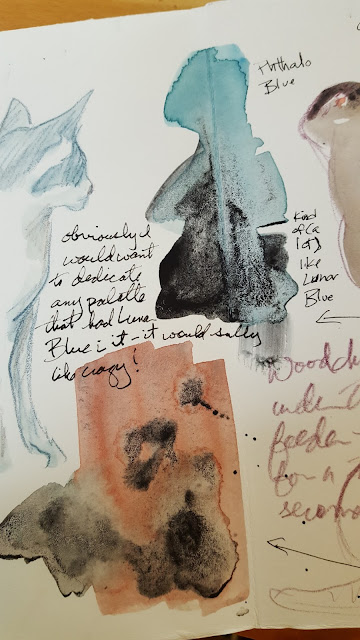 Phthalo
Blue
Kind
of (a
lot)
like
Lunar
Blue
obviously I
would want
to dedicate
any palette
that had Lunar
Blue in it - it would sully
like crazy!
Woodch
under
feeder
for a
second